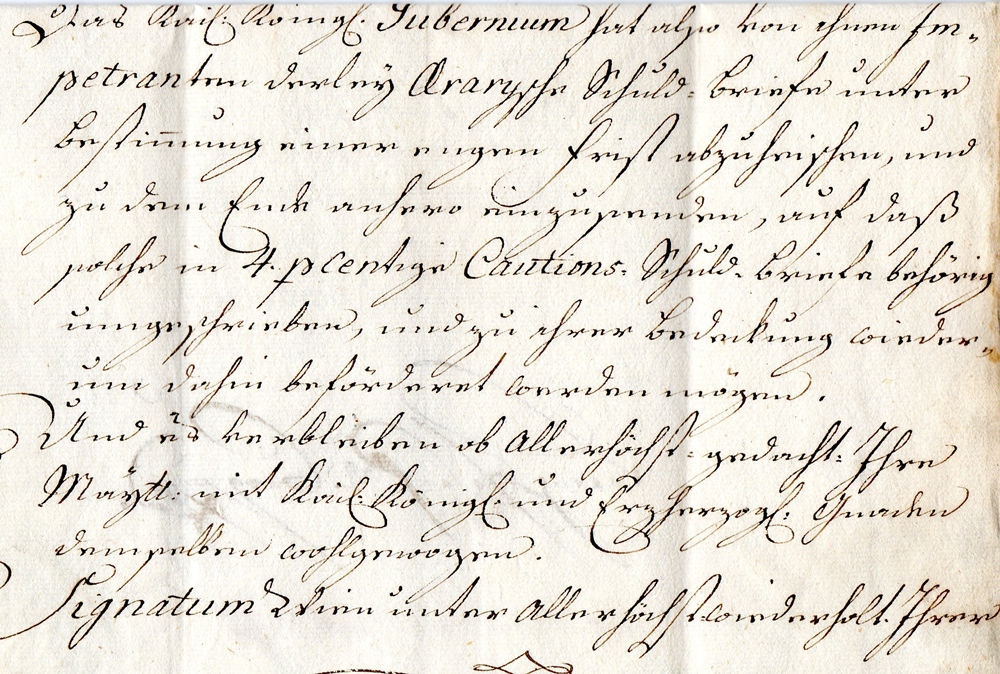 Das Kais: Königl. Gubernium hat also von ihnen Im=
petranten derley Ærarysche Schuld=briefe unter
bestimung einer engen Frist abzuheischen, und
zu dem Ende anhero einzusenden, auf daß
solche in 4. pcentige Cautions=Schuld=briefe behörig
umgeschrieben, und zu ihrer bedeckung wieder=
um dahin beförderet werden mögen.
Und es verbleiben ob Allerhöchst=gedacht: Ihre
Maytt: mit Kais: Königl. und Erzherzogl: Gnaden
demselben wohlgewogen.
Signatum Wien unter Allerhöchst=wiederholt. Ihrer